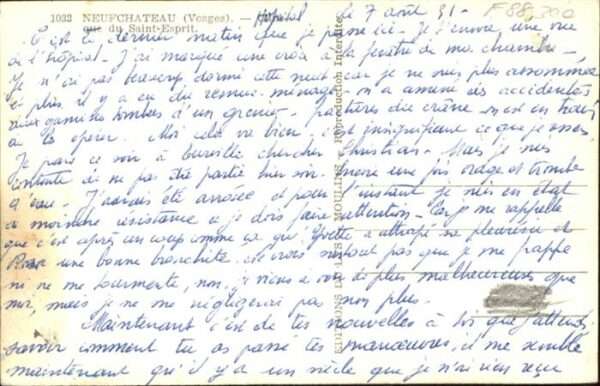 1032 NEUFCHATEAU (Vosges). – Hôpital le 7 août 51 – F88,300
que du Saint-Esprit.
C'est le dernier matin que je passe ici. Je t'envoie une vue
de l'hôpital. J'ai marqué une croix à la fenêtre de ma chambre.
Je n'ai pas beaucoup dormi cette nuit car je ne suis plus assommée
et puis il y a eu du remue-ménage. On a amené des accidentés
deux gamins tombés d'un grenier – fractures du crâne – on est en train
de les opérer. Moi cela va bien, c'est insignifiant ce que j'ai
Je pars ce soir à chercher Christian. Mais je suis
contente de ne pas être partie hier soir. une orage et trombe
d'eau. J'aurais été arrosée et pour l'instant je suis en état
de moindre résistance et je dois faire attention. Car je me rappelle
que c'est après un coup comme ça qu'Yvette a attrapé sa pleurésie et
une bonne bronchite. Ne crois surtout pas que je me frappe
ni ne me tourmente, non, je viens de voir de plus malheureuses que
moi, mais je ne me négligerai pas non plus.
Maintenant c'est de tes nouvelles à toi que j'attends,
savoir comment tu as passé tes manœuvres, il me semble
maintenant qu'il y a un siècle que je n'ai rien reçu
EDITIONS Reproduction Interdite